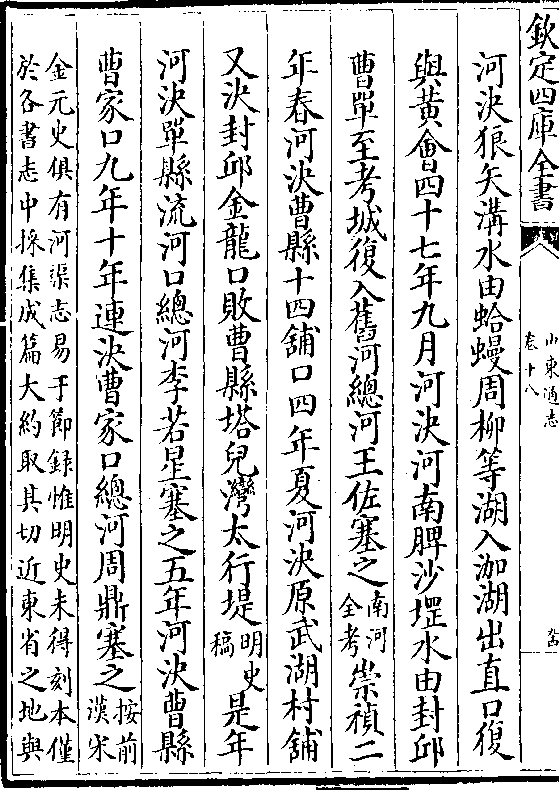 欽定四庫全書
山東通志
卷十八
河決狼矢溝水由蛤蟃周柳等湖入泇湖出直口復
與黃會四十七年九月河決河南脾沙堽水由封邱
曹單至考城復入舊河總河王佐塞之南河全考崇禎二
年春河決曹縣十四鋪口四年夏河決原武湖村鋪
又決封邱金龍口敗曹縣塔兒灣太行堤明史稿是年
河決單縣流河口總河李若星塞之五年河決曹縣
曹家口九年十年連決曹家口總河周鼎塞之按前漢宋
金元史俱有河渠志易于節錄惟明史未得刻本僅
於各書志中採集成篇大約取其切近東省之地與